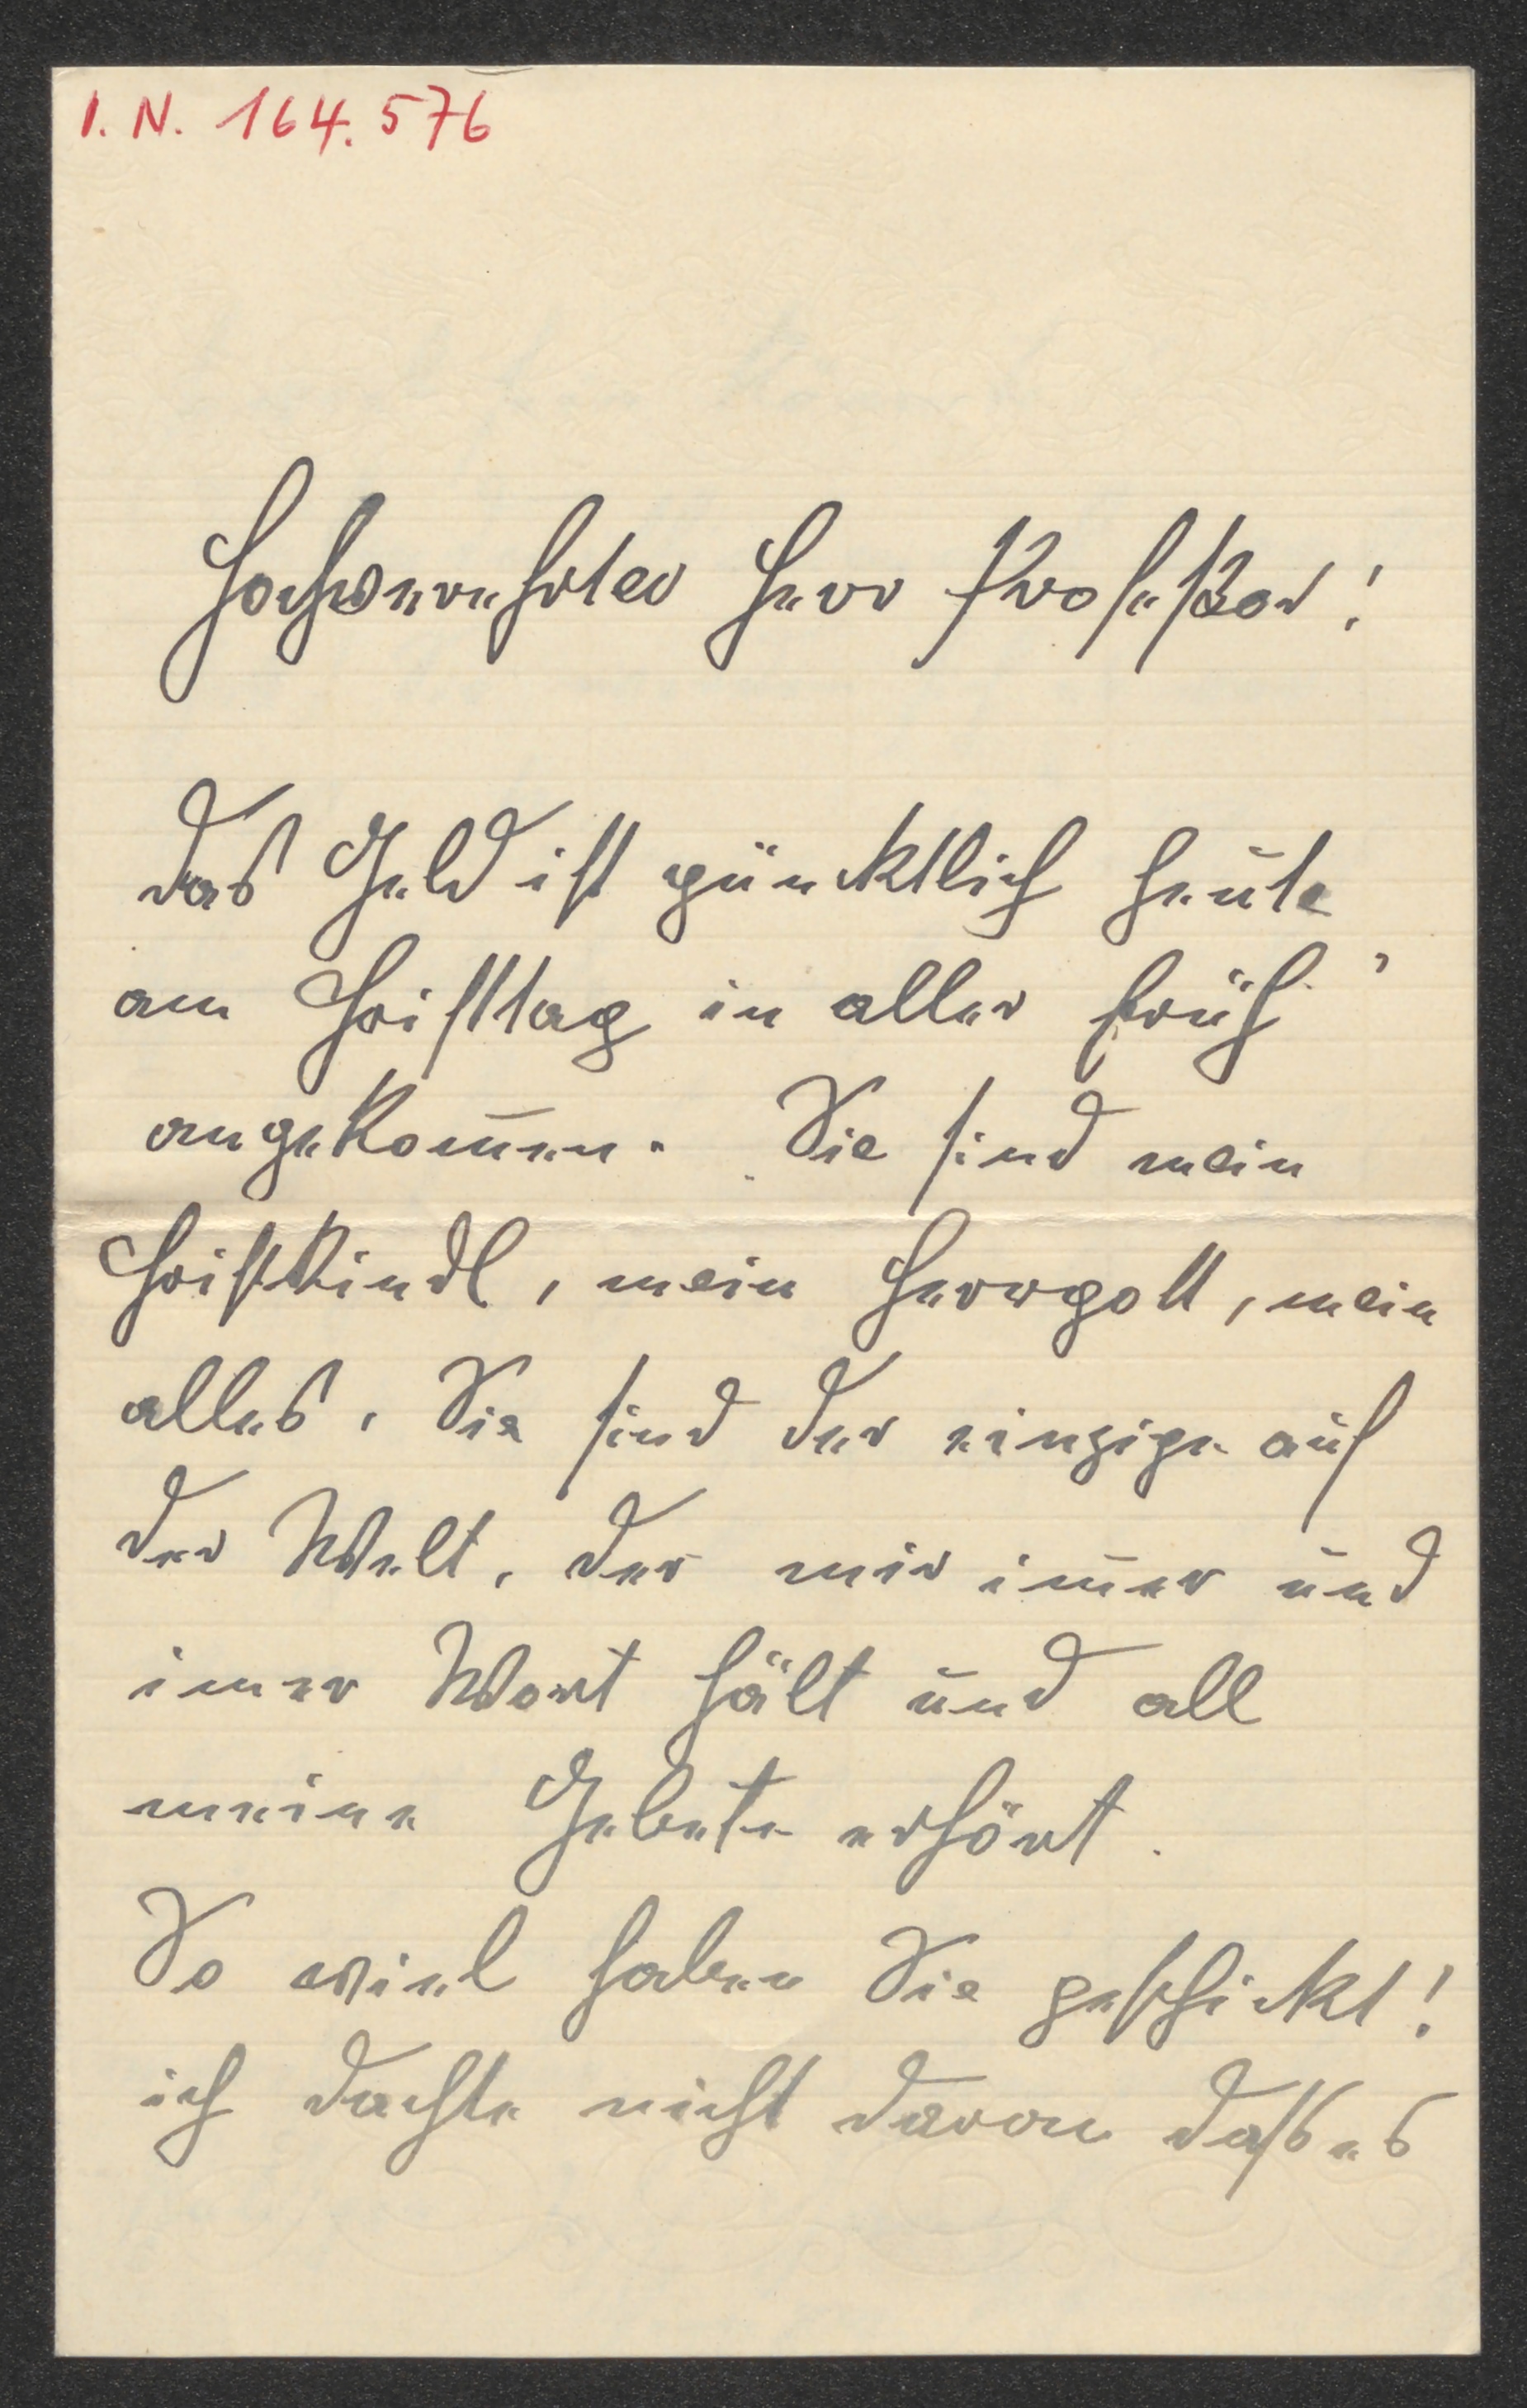 I. N. 164.576
Hochverehrter Herr Profeßor!
Das Geld ist pünktlich heute
am Christtag in aller früh'
angekom̄en. Sie sind mein
Christkindl, mein Herrgott, mein
alles. Sie sind der einzige auf
der Welt, der mir im̄er und
imer Wort hält und all
meine Gebete erhört.
So viel haben Sie geschickt!
ich dachte nicht daran daß es